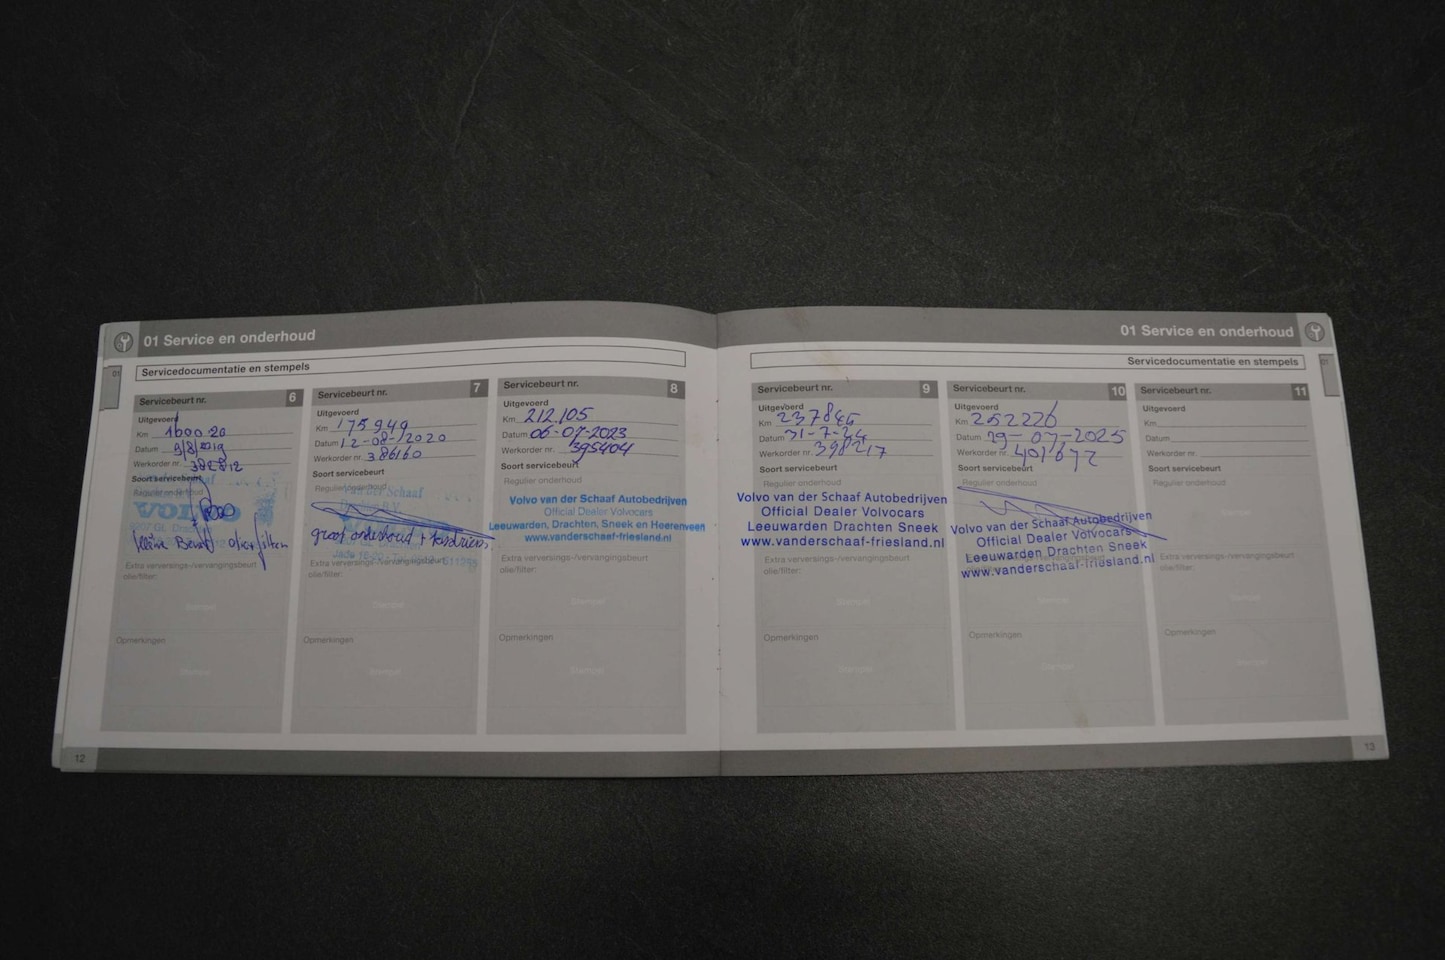 01 Service en onderhoud
Servicedocumentatie en stempels
Servicebeurt nr. 6
Uitgevoerd
Km
Datum 9/8/2019
Werkorder nr. 382812
Soort servicebeurt
Regulier onderhoud
VOLVO
kleine Beurt
Extra verversings-/vervangingsbeurt
olie/filter:
Stempel
Opmerkingen
Stempel
Servicebeurt nr. 7
Uitgevoerd
Km 175949
Datum 12-08-2020
Werkorder nr. 386160
Soort servicebeurt
Regulier onderhoud
van der Schaaf
groot onderhoud +
Extra verversings-/vervangingsbeurt
olie/filter:
Stempel
Opmerkingen
Stempel
Servicebeurt nr. 8
Uitgevoerd
Km 212,105
Datum 06-07-2023
Werkorder nr. 395404
Soort servicebeurt
Regulier onderhoud
Volvo van der Schaaf Autobedrijven
Official Dealer Volvocars
Leeuwarden, Drachten, Sneek en Heerenveen
www.vanderschaaf-friesland.nl
Extra verversings-/vervangingsbeurt
olie/filter:
Stempel
Opmerkingen
Stempel
12
01 Service en onderhoud
Servicedocumentatie en stempels
Servicebeurt nr. 9
Uitgevoerd
Km 237846
Datum 31-7-24
Werkorder nr. 398217
Soort servicebeurt
Regulier onderhoud
Volvo van der Schaaf Autobedrijven
Official Dealer Volvocars
Leeuwarden Drachten Sneek
www.vanderschaaf-friesland.nl
Extra verversings-/vervangingsbeurt
olie/filter:
Stempel
Opmerkingen
Stempel
Servicebeurt nr. 10
Uitgevoerd
Km 252226
Datum 29-07-2025
Werkorder nr. 401672
Soort servicebeurt
Regulier onderhoud
Volvo van der Schaaf Autobedrijven
Official Dealer Volvocars
Leeuwarden Drachten Sneek
www.vanderschaaf-friesland.nl
olie/filter:
Stempel
Opmerkingen
Stempel
Servicebeurt nr. 11
Uitgevoerd
Km
Datum
Werkorder nr.
Soort servicebeurt
Regulier onderhoud
Extra verversings-/vervangingsbeurt
olie/filter:
Stempel
Opmerkingen
Stempel
13